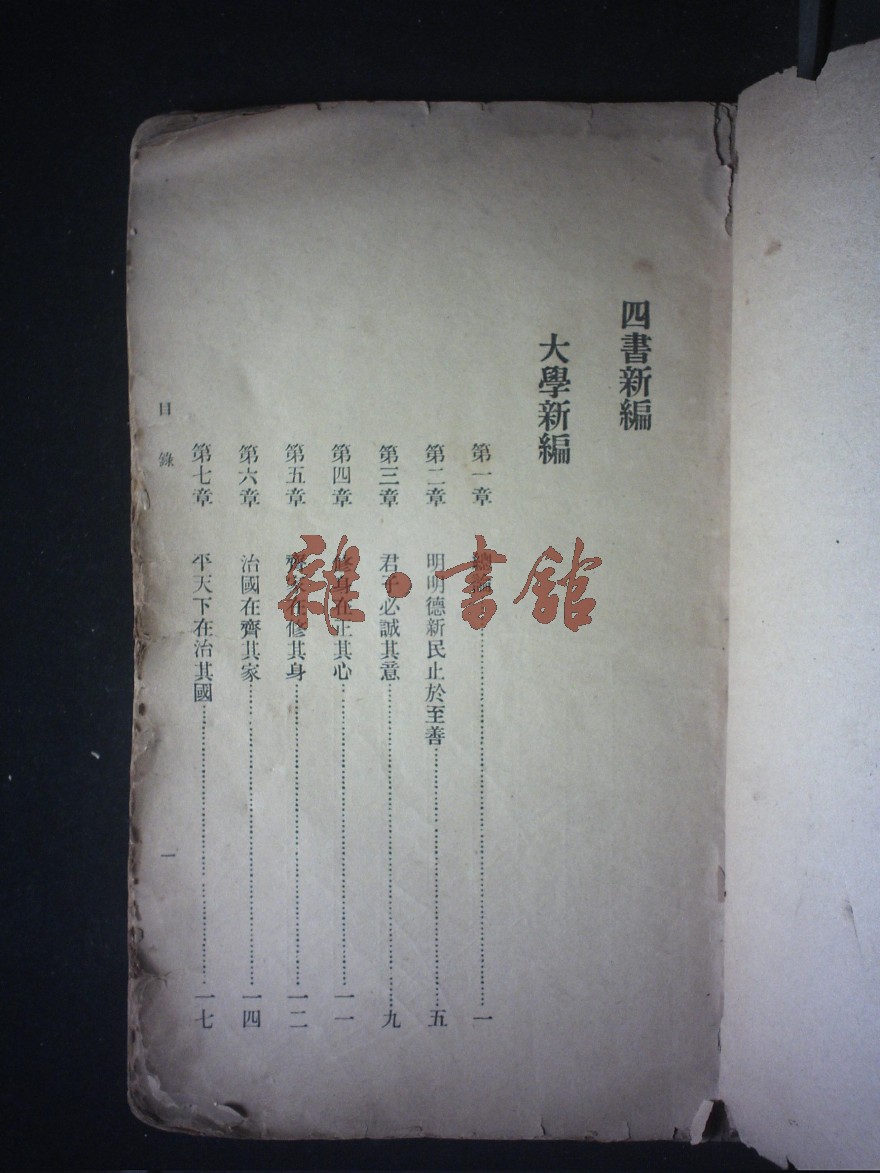 四書新編
大學新編
第一章 總論……一
第二章 明明德新民止於至善……五
第三章 君子必誠其意……九
第四章 修身在正其心……一一
第五章 齊家在修其身……一二
第六章 治國在齊其家……一四
第七章 平天下在治其國……一七
目錄 一
雜·書館